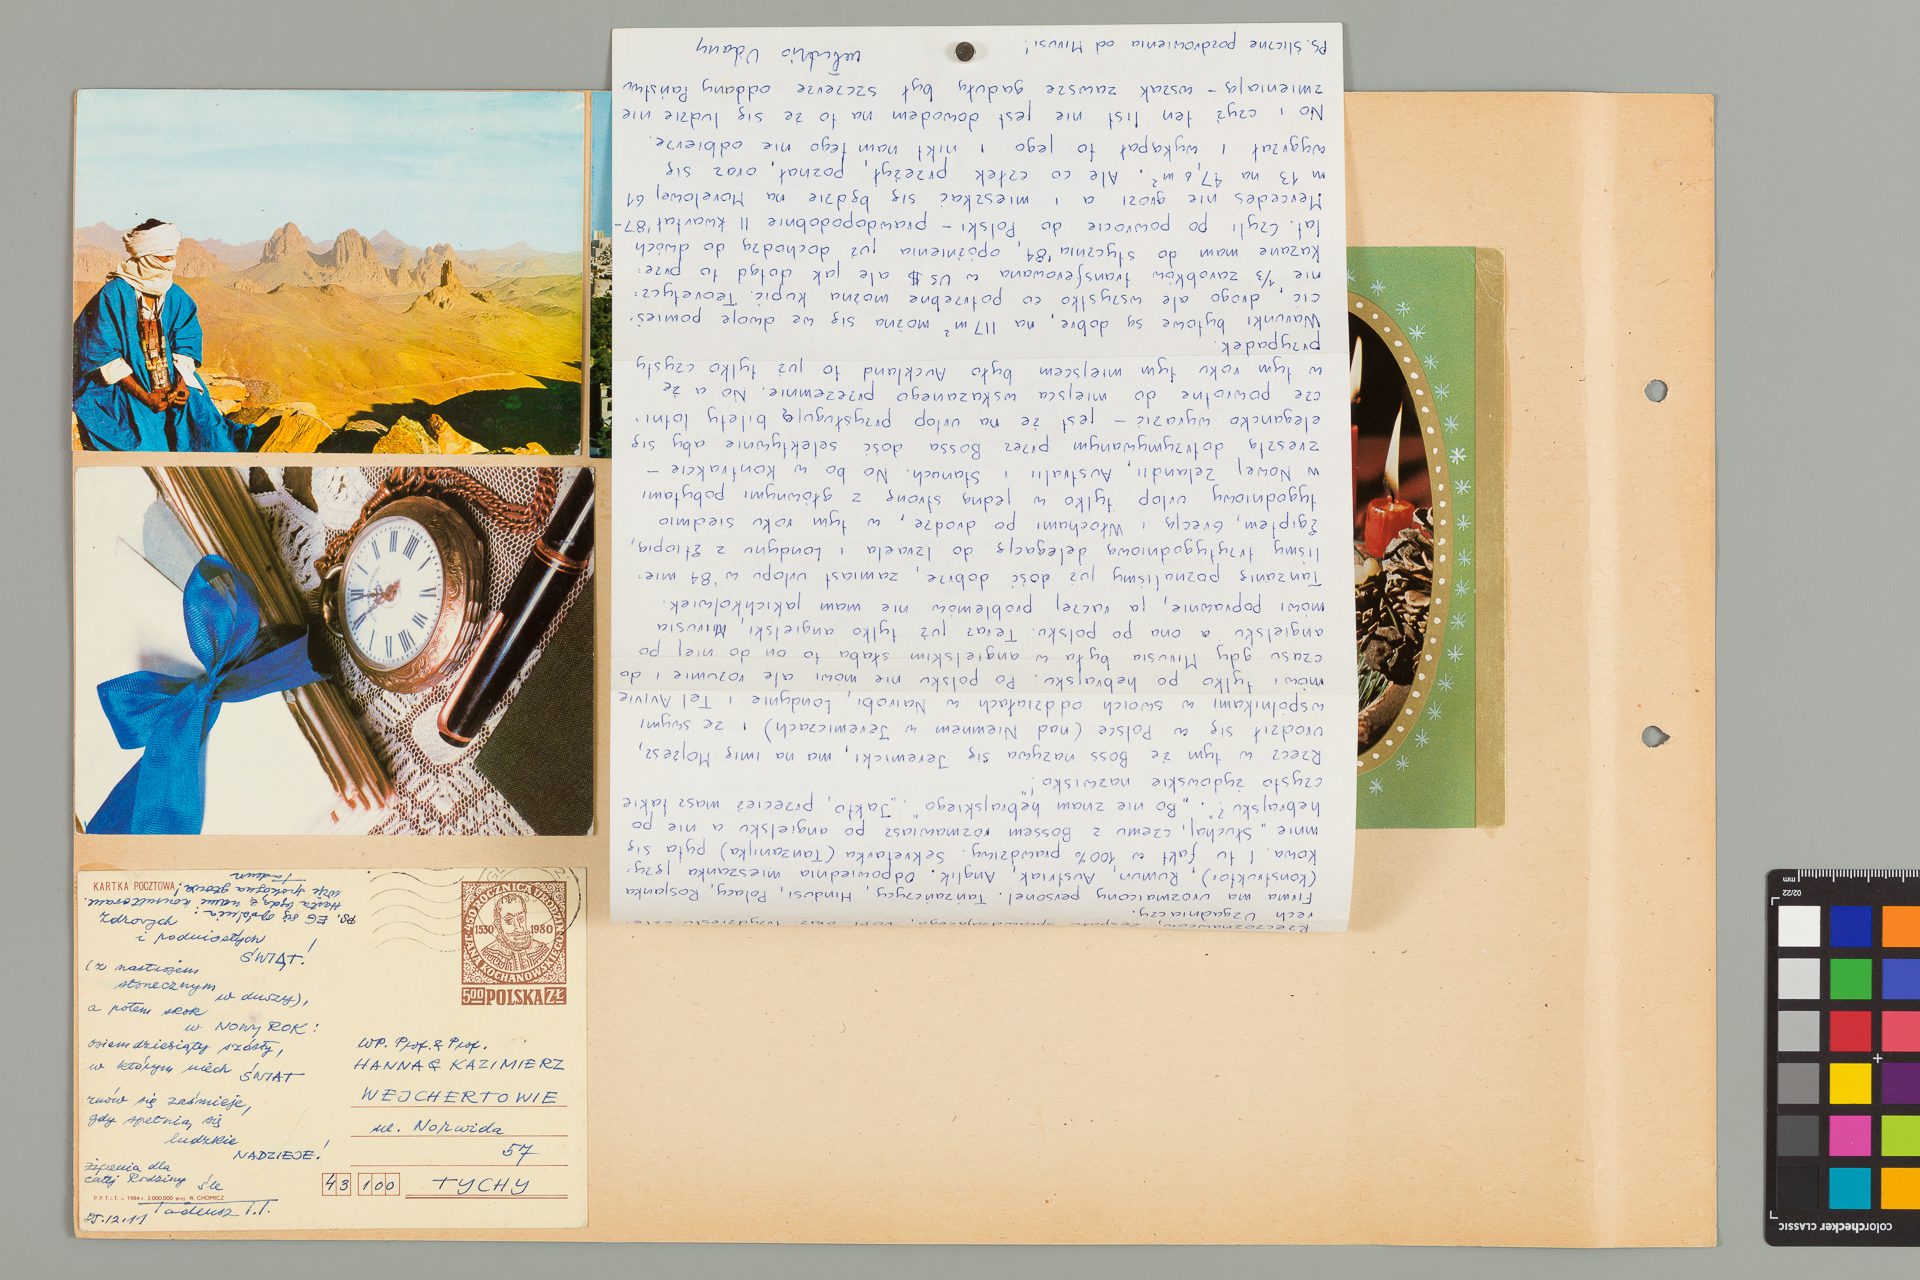 Rzeczoznawców, zespołu sprawdzającego, kopi oraz trzydziestu czte-
rech Uzgadniaczy.
Firma ma urozmaicony personel. Tańzańczycy, Hindusi, Polacy, Rosjanka
(konstruktor), Rumun, Austriak, Anglik. Odpowiednia mieszanka języ:
kowa. I tu fakt w 100% prawdziwy. Sekretarka (Tanzanijka) pyta się
mnie „Słuchaj, czemu z Bossem rozmawiasz po angielsku a nie po
hebrajsku?". „Bo nie znam hebrajskiego". „Jakto, przecież masz takie
czysto żydowskie nazwisko!"
Rzecz w tym że Boss nazywa się Jeremicki, ma na imię Mojżesz,
urodził się w Polsce (nad Niemnem w Jeremiczach) i ze swymi
wspólnikami w swoich oddziałach w Nairobi, Londynie i Tel Avivie
mówi tylko po hebrajsku. Po polsku nie mówi ale rozumie i do
czasu gdy Mirusia była w angielskim słaba to on do niej po
angielsku a ona po polsku. Teraz już tylko angielski, Mirusia
mówi poprawnie, ja raczej problemów nie mam jakichkolwiek.
Tanzanię poznaliśmy już dość dobrze, zamiast urlopu w '84 mie:
liśmy trzytygodniową delegację do Izraela i Londynu z Etiopią,
Egiptem, Grecją i Włochami po drodze, w tym roku siedmio
tygodniowy urlop tylko w jedną stronę z głównymi pobytami
w Nowej Zelandii, Australii i Stanach. No bo w kontrakcie -
zresztą dotrzymywanym przez Bossa dość selektywnie aby się
elegancko wyrazić - jest że na urlop przysługują bilety lotni:
cze powrotne do miejsca wskazanego przezemnie. No a że
w tym roku tym miejscem było Auckland to już tylko czysty
przypadek.
Warunki bytowe są dobre, na 117 m² można się we dwoje pomieś:
cić, drogo ale wszystko co potrzebne można kupić. Teoretycz:
nie 1/3 zarobków transferowana w US $ ale jak dotąd to prze:
kazane mam do stycznia '84, opóźnienia już dochodzą do dwóch
lat. Czyli po powrocie do Polski - prawdopodobnie II kwartał '87 -
Mercedes nie grozi a i mieszkać się będzie na Morelowej 61
m 13 na 47,6 m². Ale co człek przeżył, poznał, oraz się
wygrzał i wykąpał to jego i nikt nam tego nie odbierze.
No i czyż ten list nie jest dowodem na to że się ludzie nie
zmieniają - wszak zawsze gadułą był szczerze oddany Państwu
PS. Śliczne pozdrowienia od Mirusi!
KARTKA POCZTOWA
450 ROCZNICA URODZIN
JANA KOCHANOWSKIEGO
1530 1980
5,00 POLSKA ZŁ
Zdrowych
i podniosłych
ŚWIĄT!
(z nastrojem
słonecznym
w duszy),
a potem skok
w NOWY ROK:
osiemdziesiąty szósty,
w którym niech ŚWIAT
znów się zaśmieje,
gdy spełnią się
ludzkie
NADZIEJE!
Życzenia dla
całej Rodziny śle
Tadeusz T.T.
85.12.11
P.P.T.i T. – 1984 r. 2.000.000 proj. W. CHOMICZ
WP. Prof. & Prof.
HANNA & KAZIMIERZ
WEJCHERTOWIE
ul. Norwida
57
43 100 TYCHY
mm
02/22
colorchecker CLASSIC